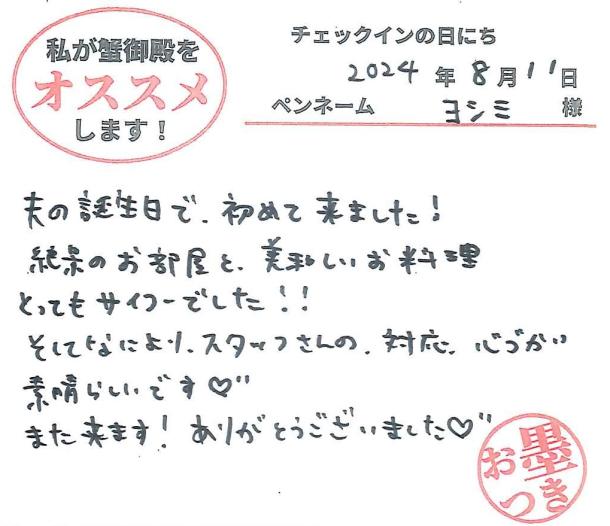 私が蟹御殿を
オススメ
します！
チェックインの日にち
2024年8月11日
ペンネーム ヨシミ 様
夫の誕生日で、初めて来ました！
絶景のお部屋と、美味しいお料理
とってもサイコーでした！！
そしてなにより、スタッフさんの、対応、心づかい
素晴らしいです♡
また来ます！ありがとうございました♡
お墨
つき